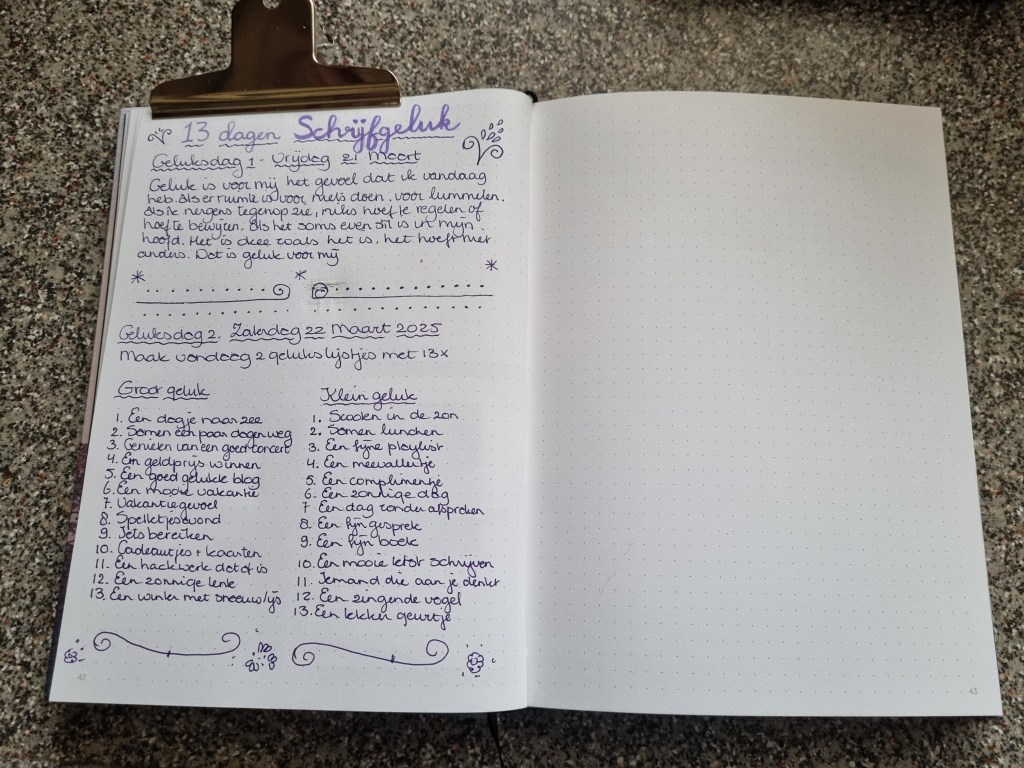 13 dagen Schrijfgeluk
Geluksdag 1 - Vrijdag 21 Maart
Geluk is voor mij het gevoel dat ik vandaag
heb. Als er ruimte is voor niets doen. voor lummelen.
Als ik nergens tegenop zie, niks hoef te regelen of
hoef te bewijzen. Als het soms even stil is in mijn
hoofd. Het is okee zoals het is, het hoeft niet
anders. Dat is geluk voor mij
Geluksdag 2. Zaterdag 22 Maart 2025
Maak vandaag 2 geluks lijstjes met 13x
Groot geluk
1. Een dagje naar zee
2. Samen een paar dagen weg
3. Genieten van een goed concert
4. Een geldprijs winnen
5. Een goed gelukte blog
6. Een mooie vakantie
7. Vakantiegevoel
8. Spelletjesavond
9. Iets bereiken
10. Cadeautjes + kaarten
11. Een haakwerk dat af is
12. Een zonnige lente
13. Een winter met sneeuw/ijs
Klein geluk
1. Scoolen in de zon
2. Samen lunchen
3. Een fijne playlist
4. Een meevallertje
5. Een complimentje
6. Een zonnige dag
7 Een dag zonder afspraken
8. Een fijn gesprek
9. Een fijn boek
10. Een mooie tekst schrijven
11. Iemand die aan je denkt
12. Een zingende vogel
13. Een lekker geurtje
42
43